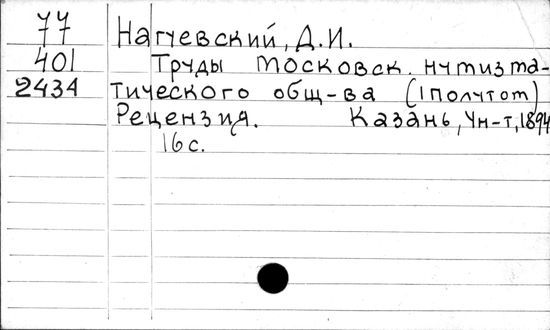 77 Нагуевский, Д.И.
401 Труды московск. нумизма-
2434 тического общ-ва (1 полутом)
Рецензия. Казань, Ун-т, 1894
16 с.